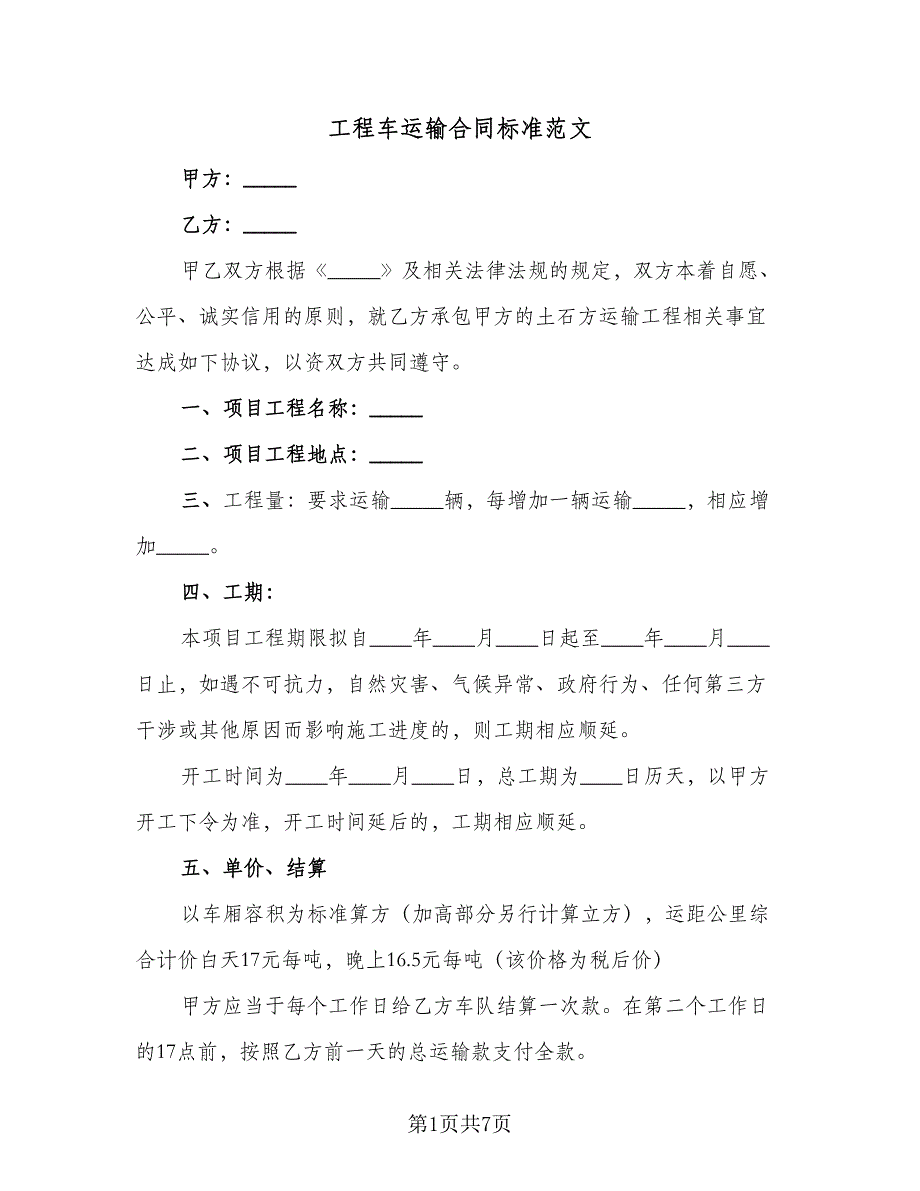 工程车运输合同标准范文
甲方：_____
乙方：_____
甲乙双方根据《_____》及相关法律法规的规定，双方本着自愿、
公平、诚实信用的原则，就乙方承包甲方的土石方运输工程相关事宜
达成如下协议，以资双方共同遵守。
一、项目工程名称：_____
二、项目工程地点：_____
三、工程量：要求运输_____辆，每增加一辆运输_____，相应增
加_____。
四、工期：
本项目工程期限拟自____年____月____日起至____年____月____
日止，如遇不可抗力，自然灾害、气候异常、政府行为、任何第三方
干涉或其他原因而影响施工进度的，则工期相应顺延。
开工时间为____年____月____日，总工期为____日历天，以甲方
开工下令为准，开工时间延后的，工期相应顺延。
五、单价、结算
以车厢容积为标准算方（加高部分另行计算立方），运距公里综
合计价白天17元每吨，晚上16.5元每吨（该价格为税后价）
甲方应当于每个工作日给乙方车队结算一次款。在第二个工作日
的17点前，按照乙方前一天的总运输款支付全款。
第1页共7页